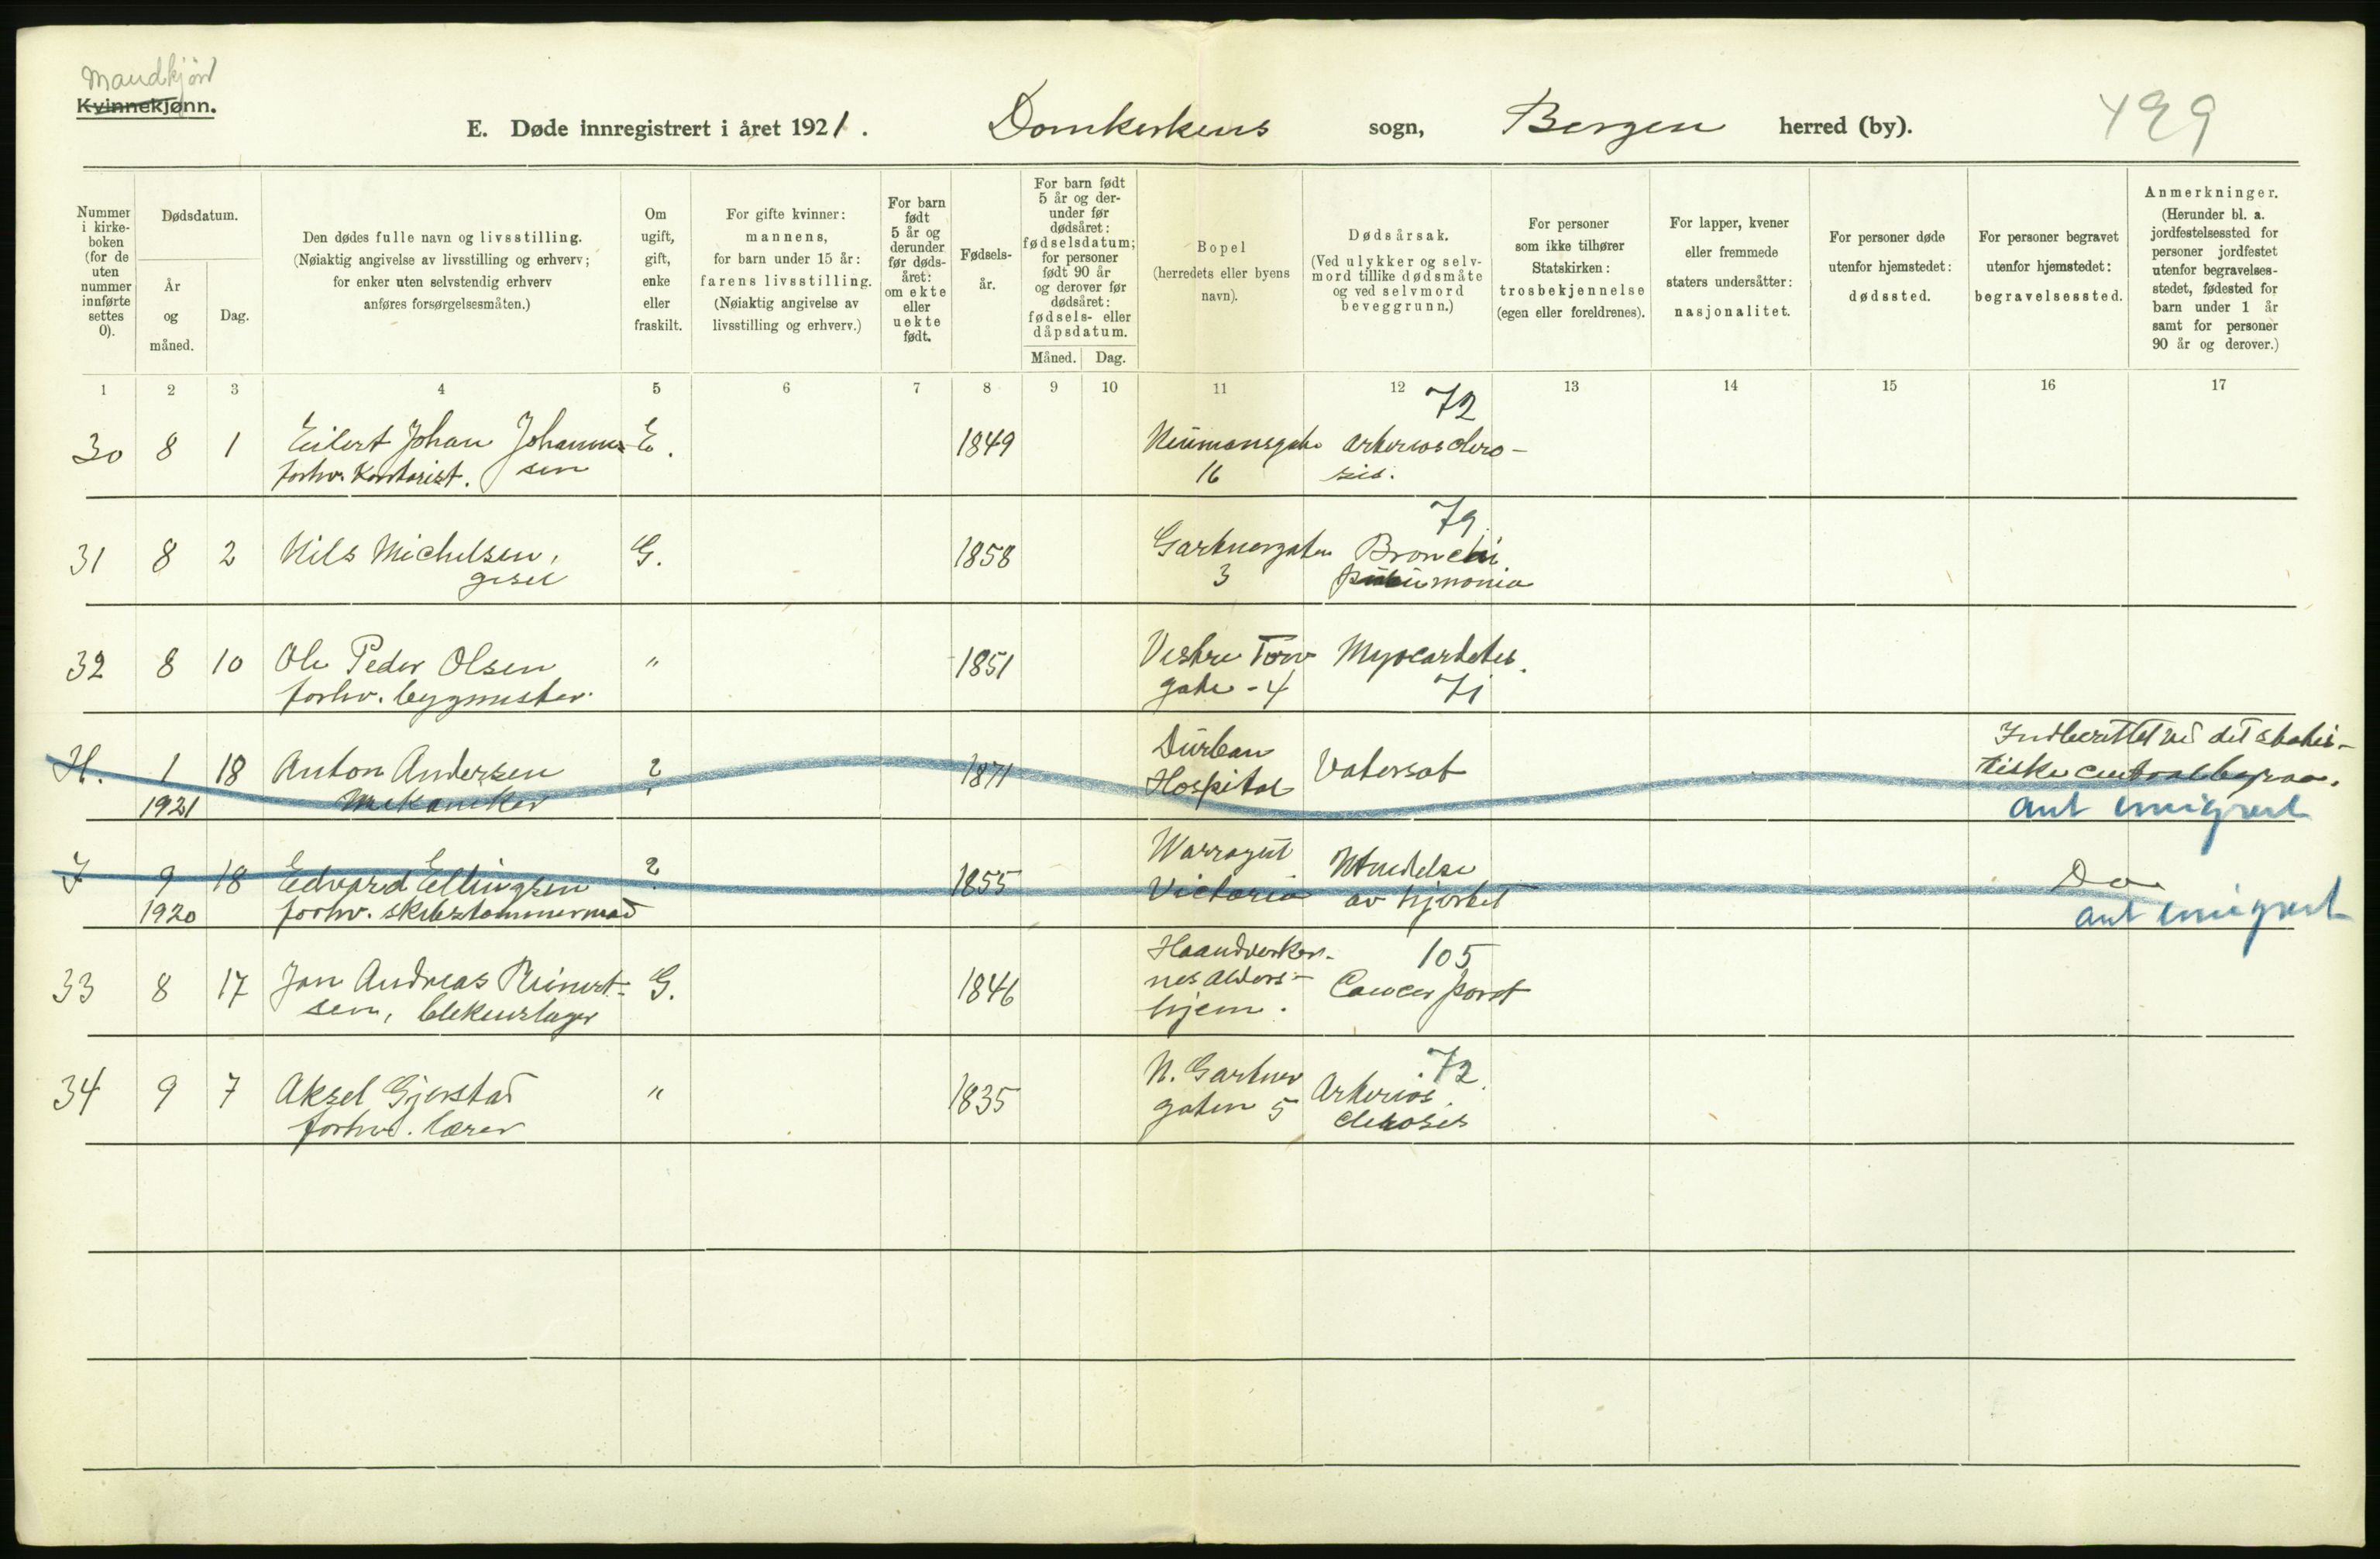 Mandkjön
Kvinnekjønn.
E. Døde innregistrert i året 1921. Domkirkens sogn, Bergen herred (by). 499
Nummer i kirkeboken (for de uten nummer innførte settes 0).
Dødsdatum.
År og måned.
Dag.
Den dødes fulle navn og livsstilling.
(Nøiaktig angivelse av livsstilling og erhverv;
for enker uten selvstendig erhverv
anføres forsørgelsesmåten.)
Om ugift, gift, enke eller fraskilt.
For gifte kvinner:
mannens,
for barn under 15 år:
farens livsstilling.
(Nøiaktig angivelse av
livsstilling og erhverv.)
For barn født 5 år og derunder før dødsåret: om ekte eller uekte født.
Fødselsår.
For barn født 5 år og derunder før dødsåret: fødselsdatum; for personer født 90 år og derover før dødsåret: fødsels- eller dåpsdatum.
Måned. Dag.
Bopel
(herredets eller byens
navn).
Dødsårsak.
(Ved ulykker og selv-
mord tillike dødsmåte
og ved selvmord
beveggrunn.)
For personer
som ikke tilhører
Statskirken:
trosbekjennelse
(egen eller foreldrenes).
For lapper, kvener
eller fremmede
staters undersåtter:
nasjonalitet.
For personer døde
utenfor hjemstedet:
dødssted.
For personer begravet
utenfor hjemstedet:
begravelsessted.
Anmerkninger.
(Herunder bl. a.
jordfestelsessted for
personer jordfestet
utenfor begravelses-
stedet, fødested for
barn under 1 år
samt for personer
90 år og derover.)
1 2 3 4 5 6 7 8 9 10 11 12 13 14 15 16 17
72
30 8 1 Eilert Johan Johannes- E. 1849 Neumansgate Arteriosclero-
forhv. Kontorist. sen 16 sis.
79
31 8 2 Nils Michelsen, G. 1858 Gartnergaten Bronchi
3 pneumonia
32 8 10 Ole Peder Olsen " 1851 Vestre Torv Myocarditis.
forhv. bygmester. gate - 4 71
H. 1 18 Anton Andersen ? 1871 Durban Vatersot Indberettet ved det statis-
1921 Mekaniker Hospital tiske centralbyraa.
ant emigrert
I 9 18 Edvard Ellingsen ? 1855 Warragul Utvidelse Do
1920 forhv. skibstømmermad Victoria av hjertet ant emigrert
33 8 17 Jan Andreas Reinert- G. 1846 Haandverker- 105
sen, blikenslager nes Alders- Cancer
hjem.
72
34 9 7 Aksel Gjerstad " 1835 N. Gartner Arterios
forhv. lærer gaten 5 clerosis